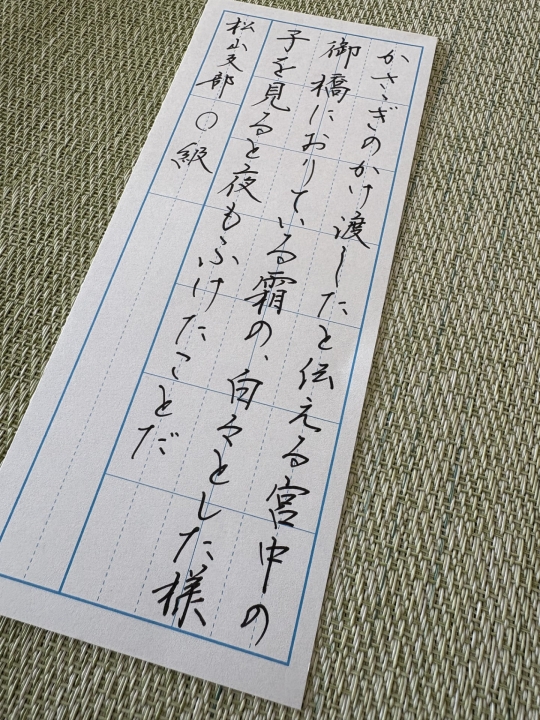 かさゝぎのかけ渡したと伝える宮中の
御橋におりている霜の、白々とした様
子を見ると夜もふけたことだ
松山支部 〇級